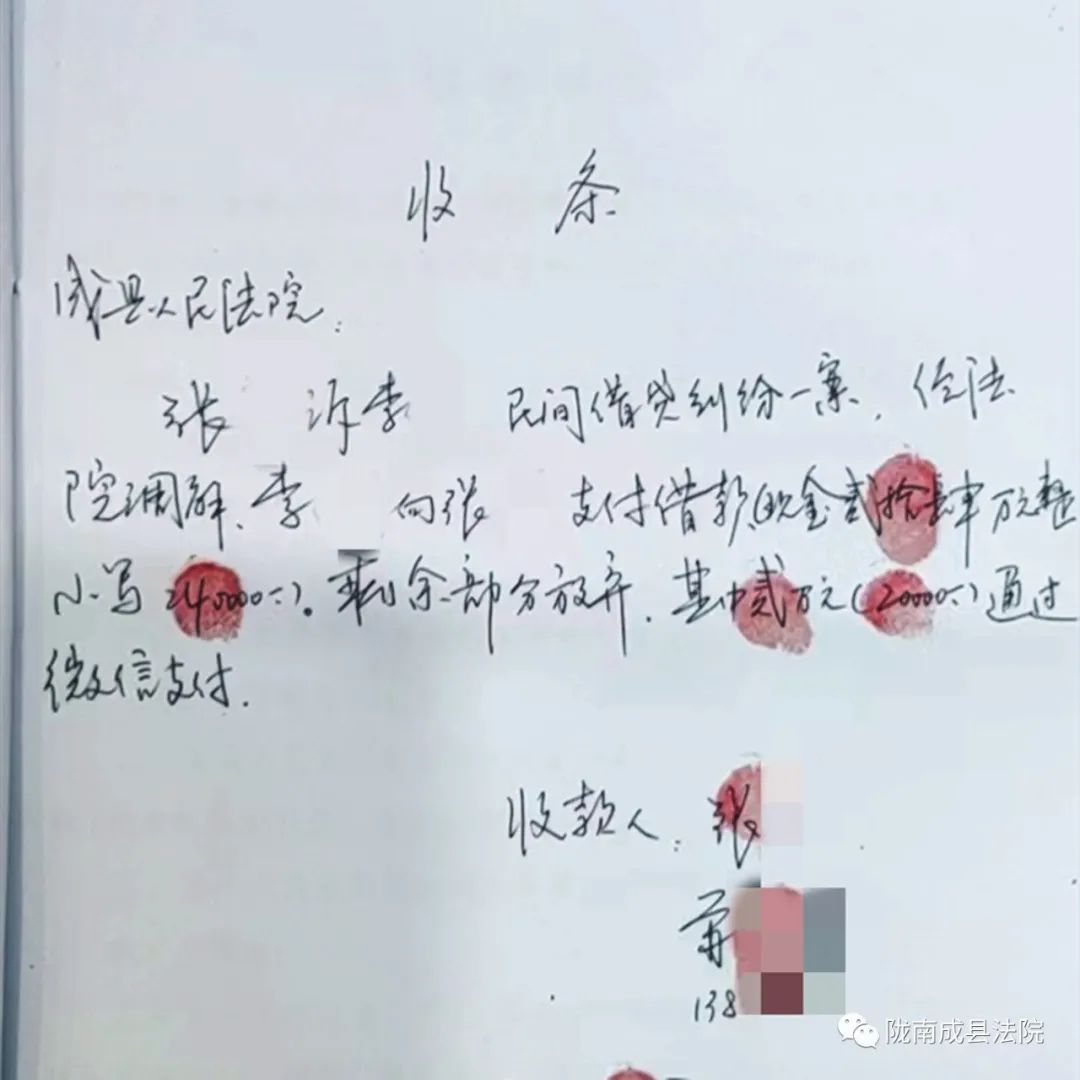 收 条
成县人民法院：
张 诉李 民间借贷纠纷一案，经法
院调解、李 向张 支付借款（现金贰拾肆万元整
小写240000.）。剩余部分放弃．其中贰万元（20000.）通过
微信支付．
收款人：张
138
陇南成县法院